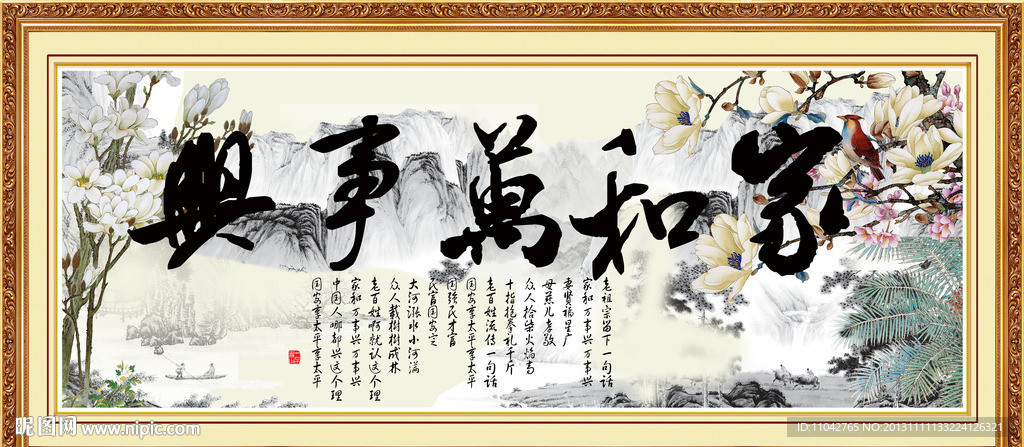 家和萬事興
老祖宗留下一句话
家和万事兴万事兴
妻贤福星广
母慈儿孝敬
众人拾柴火焰高
十指抱拳礼千斤
老百姓流传一句话
国安享太平享太平
国强民才富
民富国安定
大河涨水小河满
众人栽樹樹成林
老百姓啊就认这个理
家和万事兴万事兴
中国人哪都兴这个理
国安享太平享太平
昵图网 www.nipic.com
ID:11042765 NO:20131111133224126321